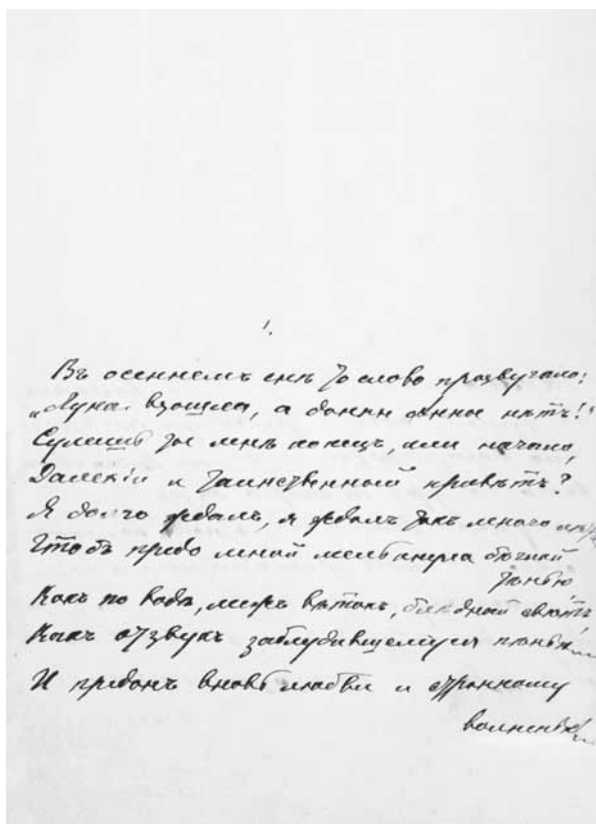 1.
Въ осеннемъ снѣ то слово прозвучало:
„Луна взошла, а донны Анны нѣтъ!"
Сулишь ты мнѣ конецъ, или начало,
Далекій и таинственный привѣтъ?
Я долго ждалъ, я ждалъ такъ много лѣтъ,
Чтобъ предо мной мелькнула бѣглой
тѣнью,
Какъ по водѣ, межъ вѣтокъ, блѣдный свѣтъ,
Какъ отзвукъ заблудившемуся пѣнью
И преданъ вновь любви и странному
волненью